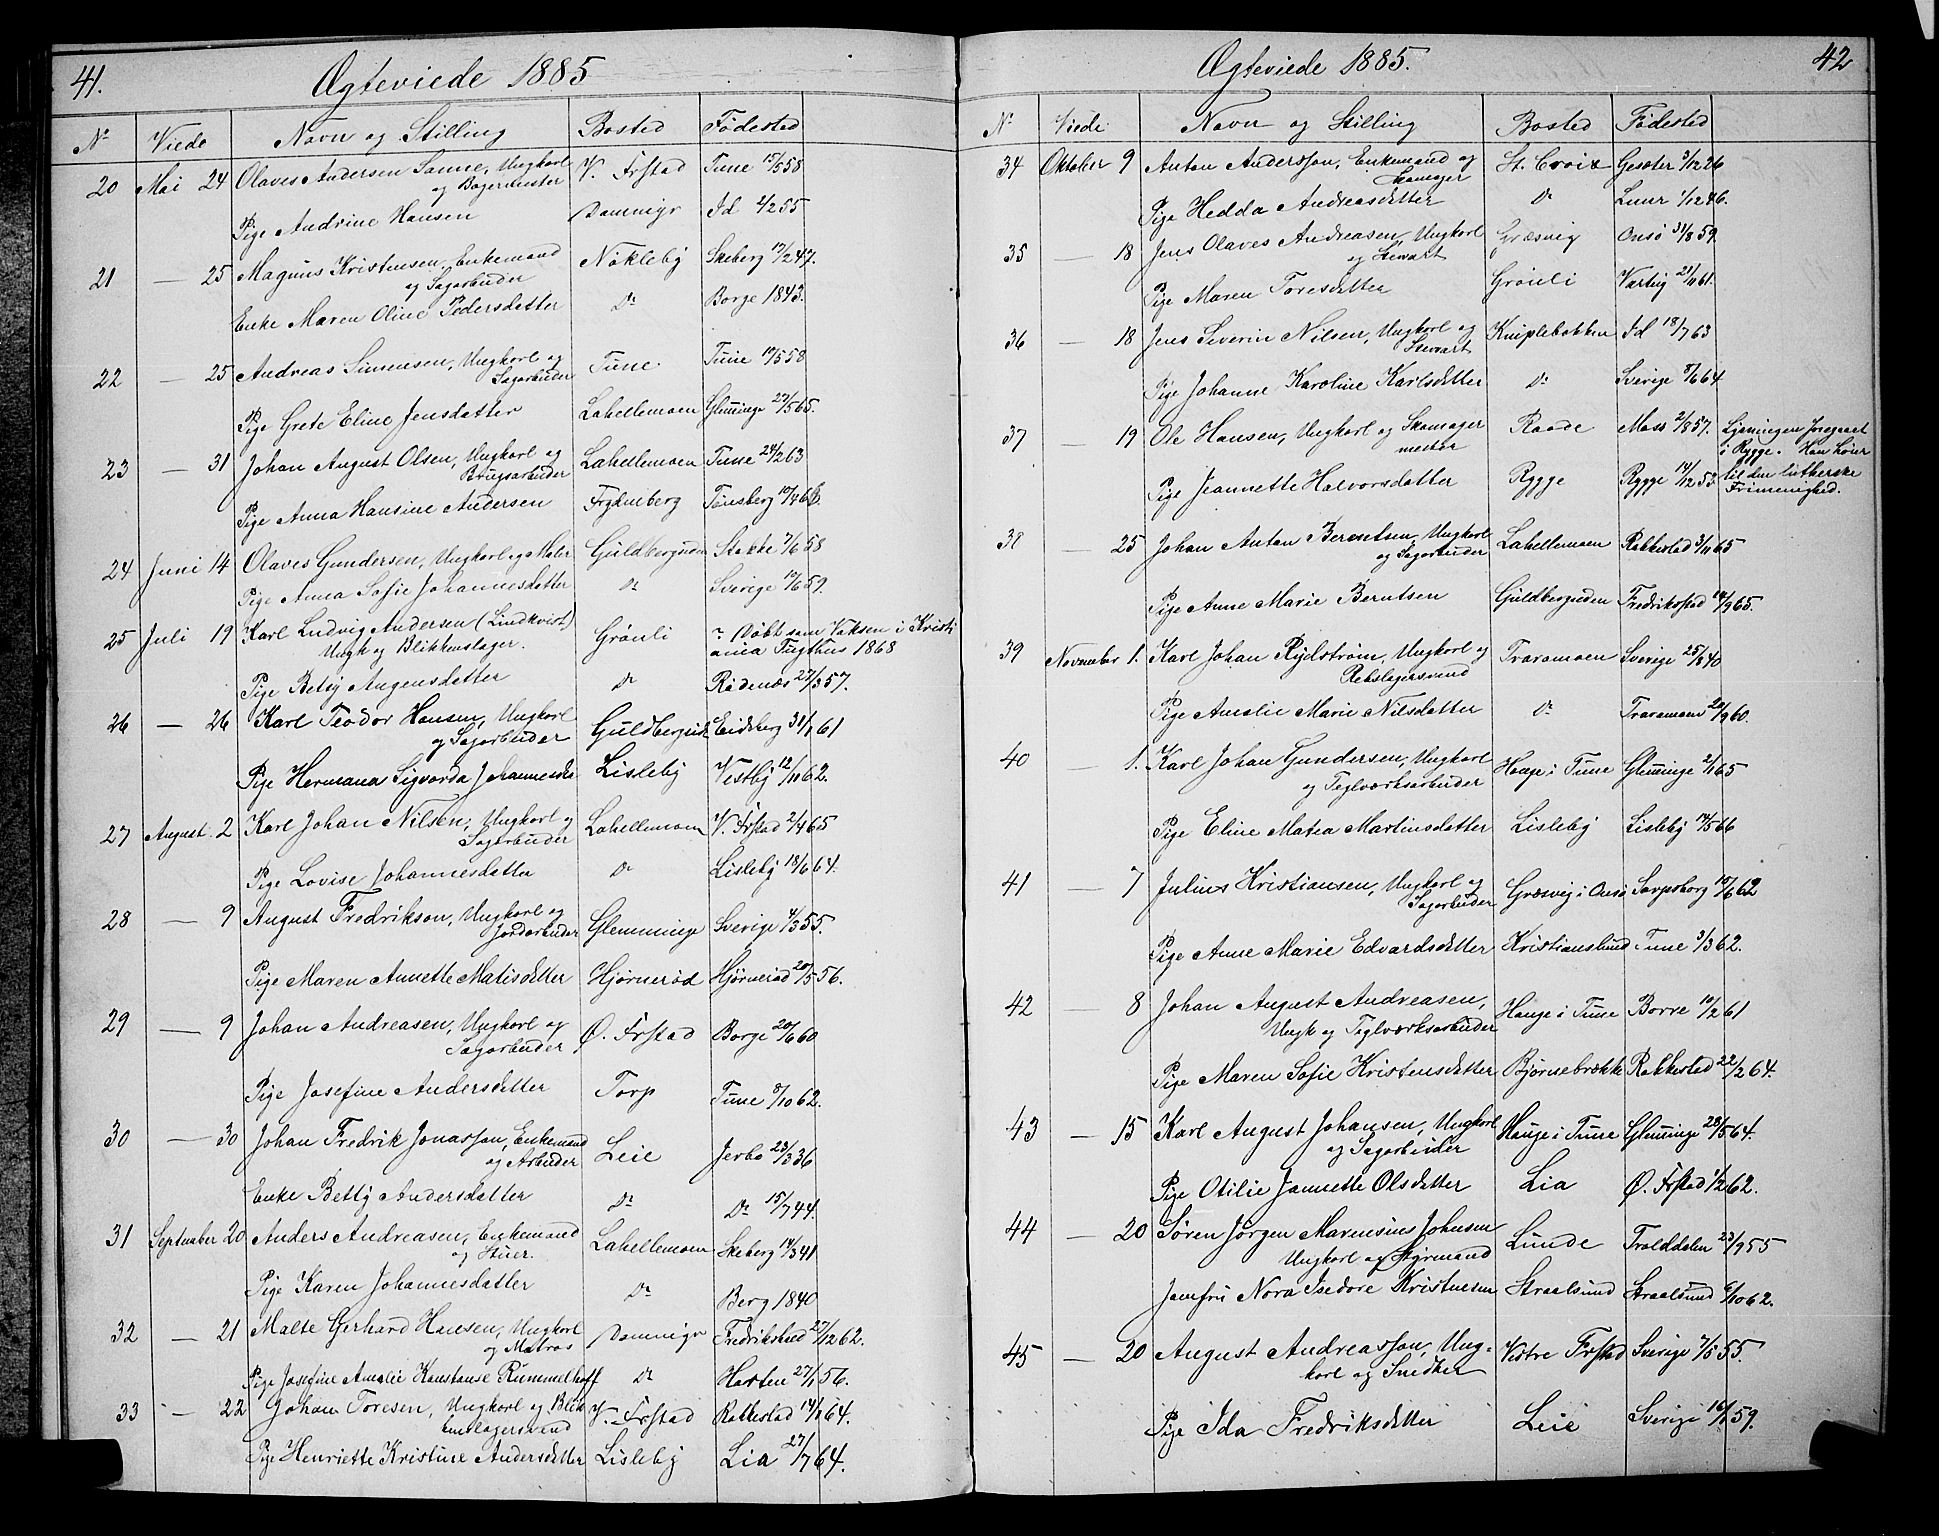 41.
Ægteviede 1885
No Viede Navn og Stilling Bosted Fødested
20 Mai 24 Olaves Andersen Sanne, Ungkarl V. Frstad Tune 15/5 58
og Bagermester
Pige Andrine Hansen Damnigv Id 4/2 55
21 — 25 Magnus Kristensen, Enkemand Nøkleby Skeberg 19/2 47.
og Sagarbeider
Enke Maren Oline Pedersdatter Do Borge 1843.
22 — 25 Andreas Simensen, Ungkarl og Tune Tune 19/5 58
Sagarbeider
Pige Grete Eline Jensdatter Lahellemoen Glemminge 27/5 65.
23 — 31 Johan August Olsen, Ungkarl og Lahellemoen Tune 24/2 63
Brugsarbeider
Pige Anna Hansine Andersen Frydenberg Tønsberg 10/4 66.
24 Juni 14 Olaves Gundersen, Ungkarl og Maler Guldbergueden Stokke 7/6 58
Pige Anna Sofie Johannesdatter Do Sverige 10/6 59.
25 Juli 19 Karl Ludvig Andersen (Lindkvist) Grönli ? Døbt som Voksen i Kristi
Ungk og Blikkenslager. ania Tugthus 1868
Pige Betsy Augensdatter Do Rødenæs 27/3 57.
26 — 26 Karl Teodor Hansen, Ungkarl Eidsberg 31/1 61
og Sagarbeider
Pige Hermana Sigvarda Lisleby Vestby 12/11 62.
27 August 2 Karl Johan Nilsen, Ungkarl og Lahellemoen V. Frstad 2/4 65
Sagarbeider
Pige Lovise Johannesdatter Do Lisleby 18/6 64.
28 — 9 August Fredrikson, Ungkarl og Glemminge Sverige 4/3 55.
Jordarbeider
Pige Maren Annette Matisdatter Hjørnerød Hjørnerød 20/5 56.
29 — 9 Johan Andreasen, Ungkarl og Ø. Frstad Borge 20/6 60
Sagarbeider
Pige Josefine Andersdatter Torp Tune 8/10 62.
30 — 30 Johan Fredrik Jonasson, Enkemand Leie Jerbo 23/3 36
og Arbeider
Enke Betty Andersdatter Do Do 15/7 44.
31 September 20 Anders Andreasen, Enkemand Lahellemoen Skeberg 14/3 41
og Stuer.
Pige Karen Johannesdatter Do Berg 1840
32 — 21 Malte Gerhard Hansen, Ungkarl Damnigv Fredrikstad 27/12 62.
og Matros
Pige Josefine Amalie Konstanse Rummelhoff Do Horten 27/1 56.
33 — 22 Johan Toresen, Ungkarl og Blik V. Frstad Rakkestad 14/8 64.
kenslagersvend
Pige Henriette Kristine Andersdatter Lisleby Lia 27/7 64.
42
Ægteviede 1885.
No Viede Navn og Stilling Bosted Fødested
34 Oktober 9 Anton Andersson, Enkemand og St. Croix Gesæter 3/12 26
Skomager
Pige Hedda Andreasdatter Do Luur 1/12 46.
35 — 18 Jens Olaves Andreasen, Ungkarl Græsvig Onsø 31/8 59.
og Stewart
Pige Maren Toresdatter Grönli Varteig 21/11 61.
36 — 18 Jens Severin Nilsen, Ungkarl og Kniplebakken Id 18/7 63
Stewart
Pige Johanne Karoline Karlsdatter Do Sverige 8/6 64
37 — 19 Ole Hansen, Ungkarl og Skomager Raade Moss 2/8 57. Lysningen foregaaet
mester i Rygge. Han hører
Pige Jeannette Halvorsdatter Rygge Rygge 14/12 53. til den lutherske
Frimenighed.
38 — 25 Johan Anton Berntsen, Ungkarl Lahellemoen Rakkestad 3/11 65
og Sagarbeider
Pige Anne Marie Berntsen Guldbergueden Fredrikstad 14/9 65.
39 November 1. Karl Johan Rydstrøm, Ungkarl og Traramoen Sverige 25/8 40
Rebslagersvend
Pige Amalie Marie Nilsdatter Do Traramoen 20/9 60.
40 — 1. Karl Johan Gundersen, Ungkarl Hauge i Tune Glemminge 2/1 65
og Teglværksarbeider
Pige Eline Matea Martinsdatter Lisleby Lisleby 19/5 66
41 — 7 Julius Kristiansen, Ungkarl og Græsvig i Onsø Sarpsborg 10/6 62
Sagarbeider
Pige Anne Marie Edvardsdatter Kristianslund Tune 3/3 62.
42 — 8 Johan August Andreasen, Hauge i Tune Borre 19/2 61
Ungk og Teglværksarbeider
Pige Maren Sofie Kristensdatter Bjørnebrække Rakkestad 22/2 64.
43 — 15 Karl August Johansen, Ungkarl Hauge i Tune Glemminge 28/5 64.
og Sagarbeider
Pige Otilie Jannette Olsdatter Lia Ø. Frstad 1/2 62.
44 — 20 Søren Jørgen Marensius Johnsen Lunde Trolddalen 23/9 55
Ungkarl og Styrmand
Jomfru Nora Isedore Kristensen Straalsund Straalsund 6/10 62.
45 — 20 August Andreasson, Ung- Vestre Frstad Sverige 7/5 55.
karl og Snedker
Pige Ida Fredriksdatter Leie Sverige 16/1 59.